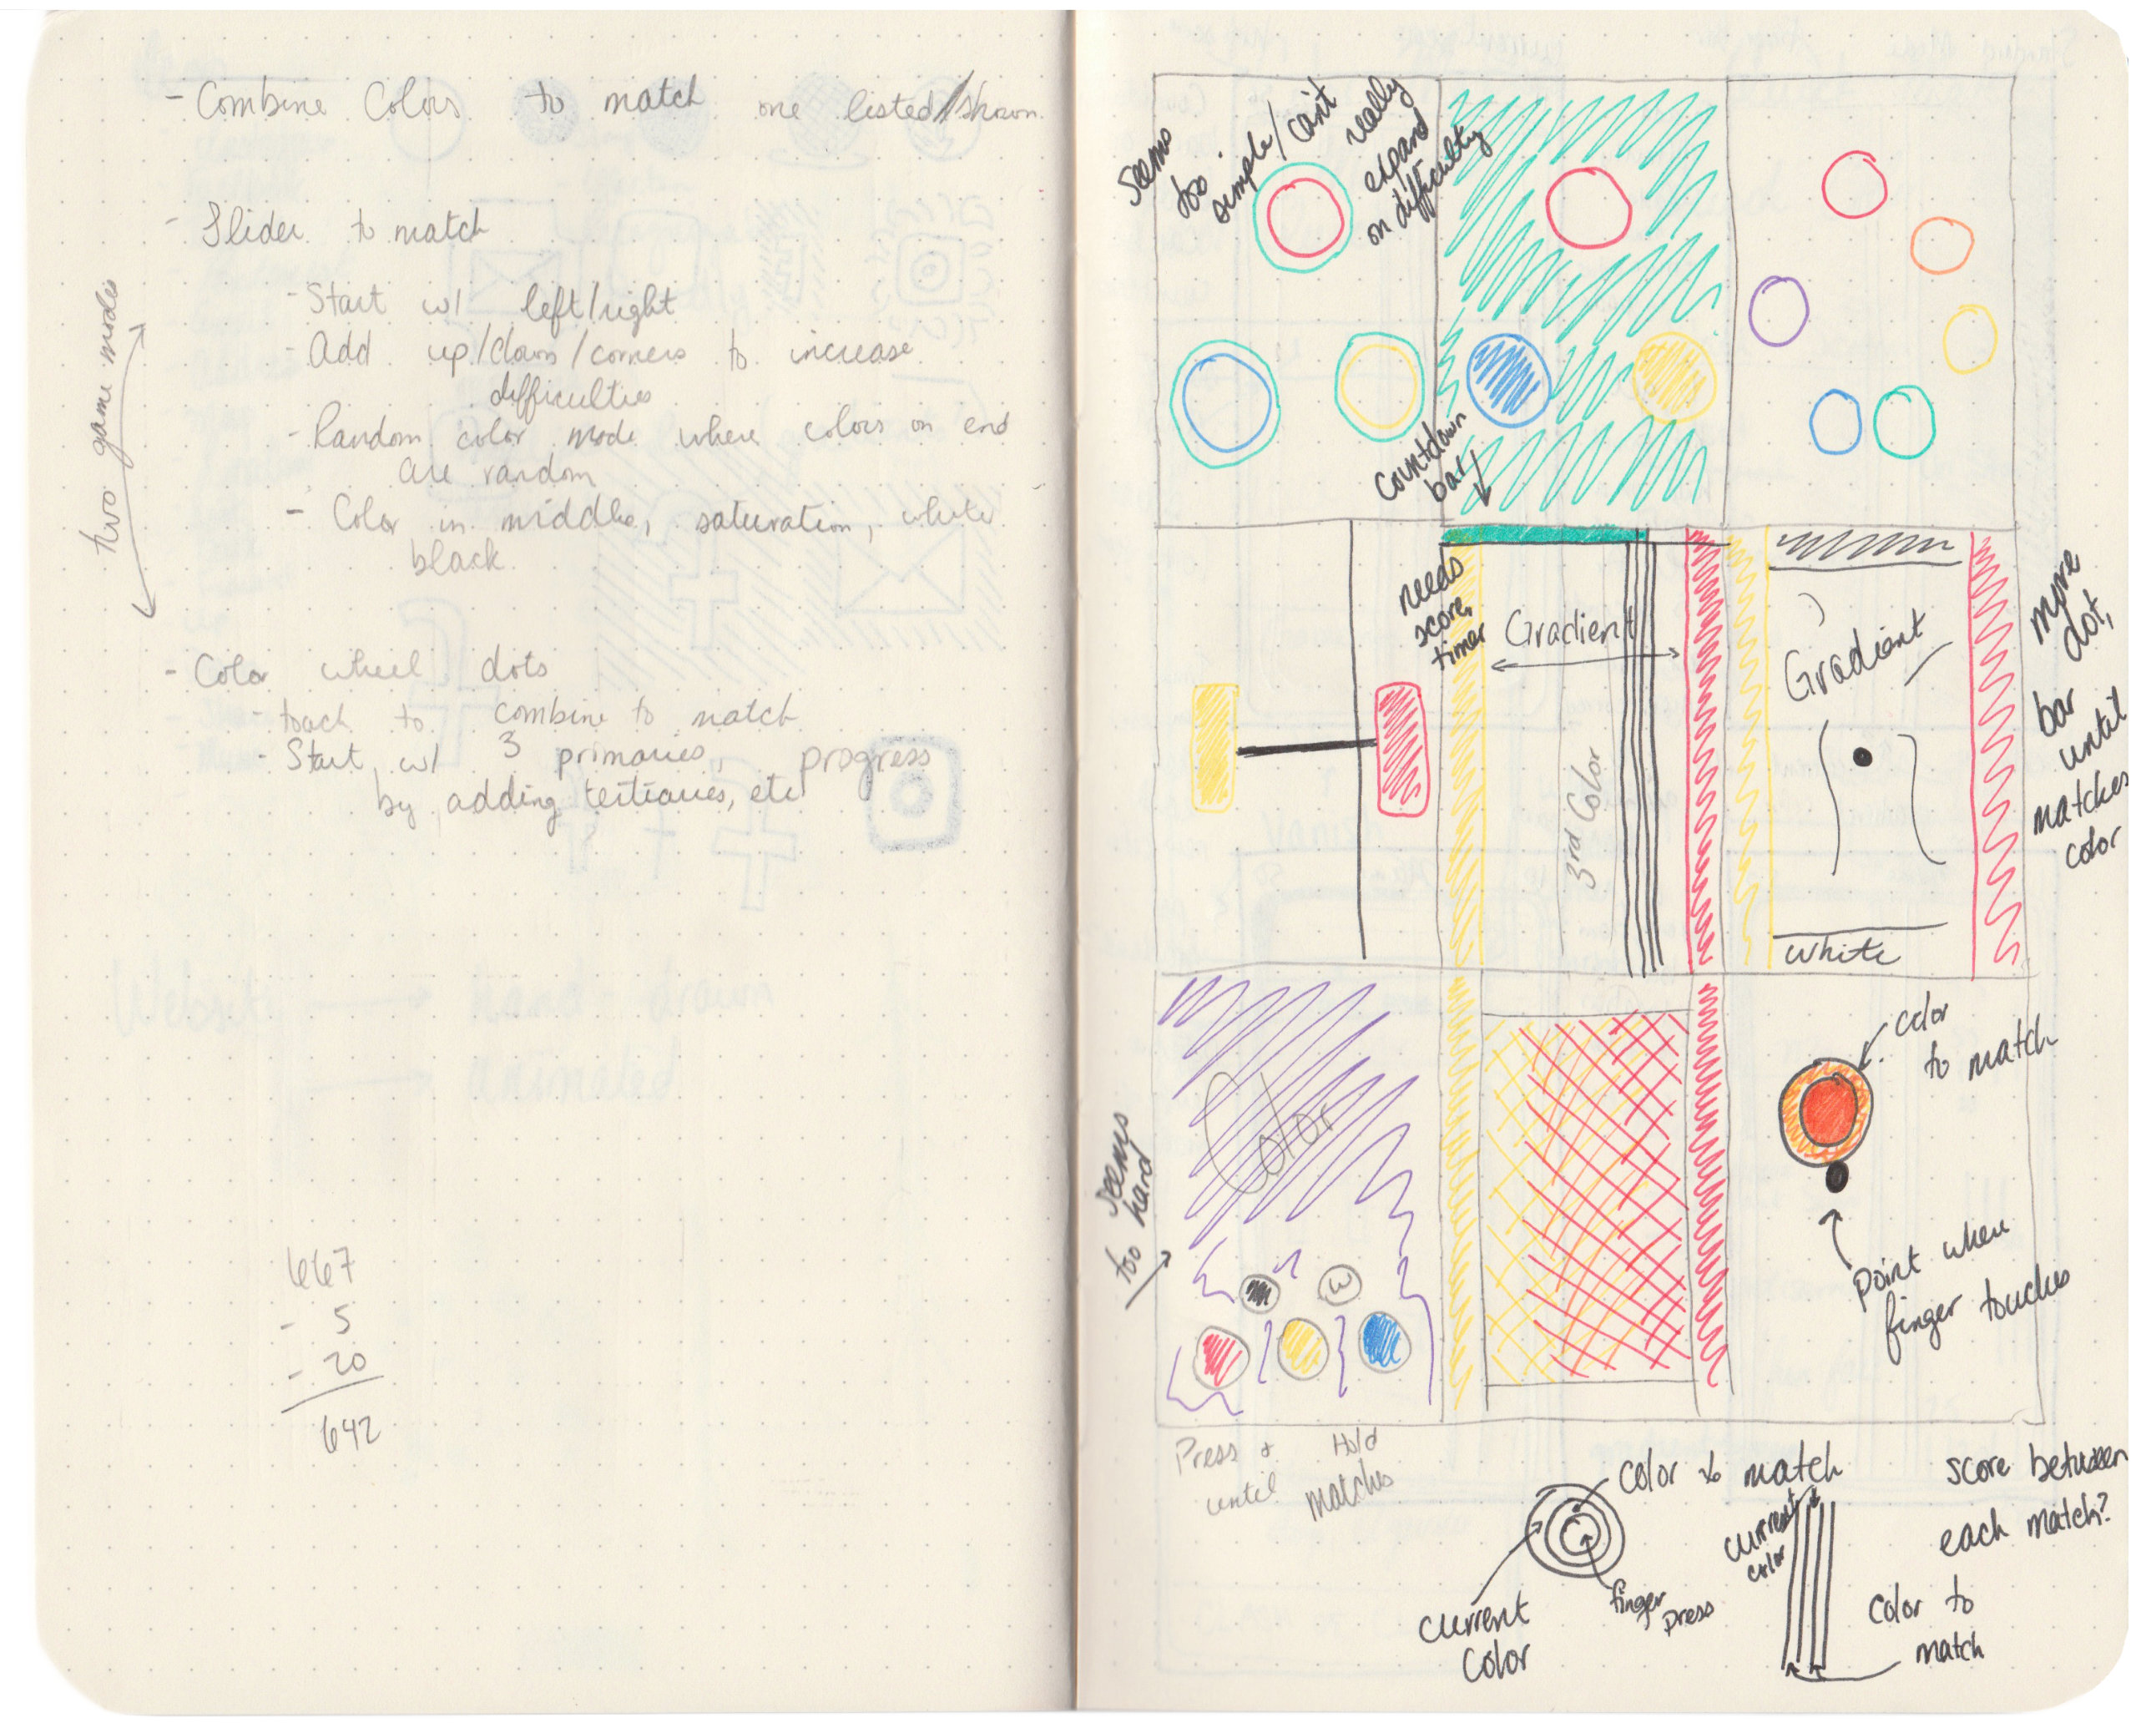 - Combine Colors to match one listed/shown.
- Slider to match
- Start w/ left/right
- Add up/down/corners to increase
difficulties
- Random color mode where colors on end
are random
- Color in middle, saturation, white
black
two game modes
- Color wheel dots
- touch to combine to match
- Start w/ 3 primaries, progress
by adding tertiaries, etc
667
- 5
- 20
642
Seems
too
simple/can't
really
expand
on difficulty
Countdown
bar
needs
score,
timer
Gradient
3rd Color
Gradient
White
move
dot,
bar
until
matches
color
Color
Seems
too hard
W
color
to match
point when
finger touches
Press + Hold
until matches
Color to match
current
color
finger
press
current
color
color to
match
score between
each match?